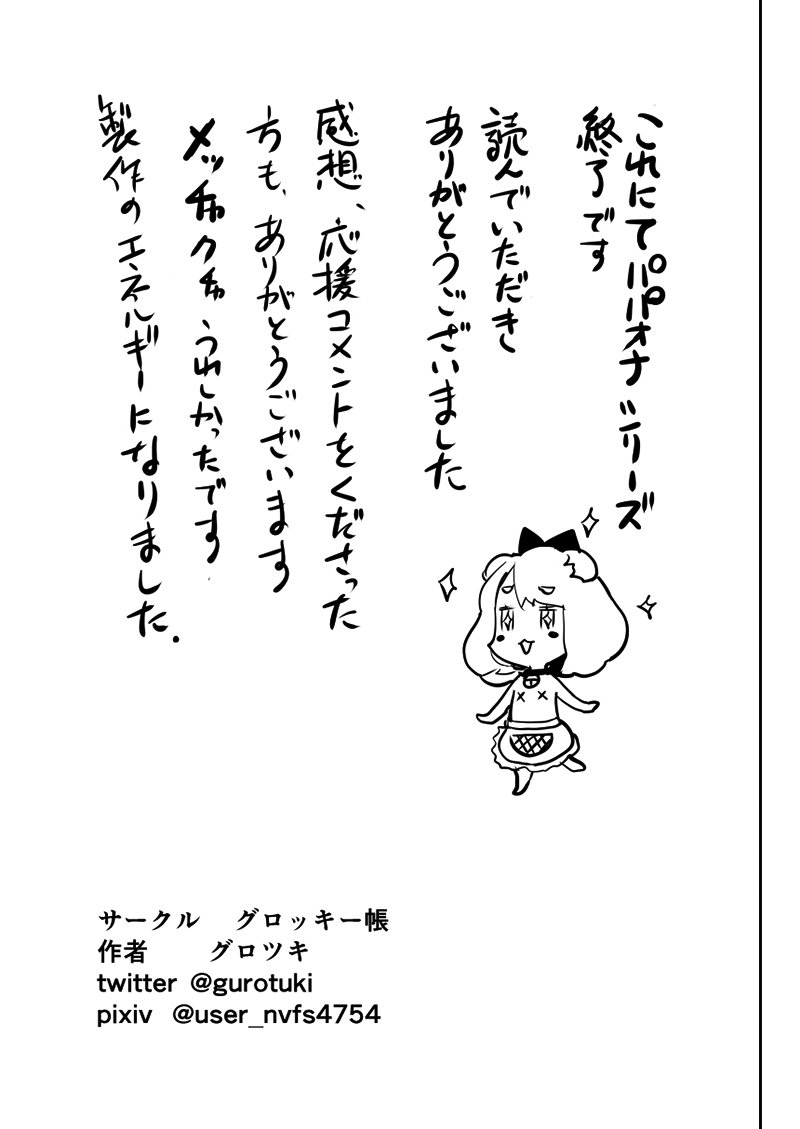 これにてパパオナシリーズ
終了です
読んでいただき
ありがとうございました
感想、応援コメントをくださった
方も、ありがとうございます
メッチャクチャうれしかったです
製作のエネルギーになりました.
サークル　グロッキー帳
作者　　グロツキ
twitter @gurotuki
pixiv @user_nvfs4754